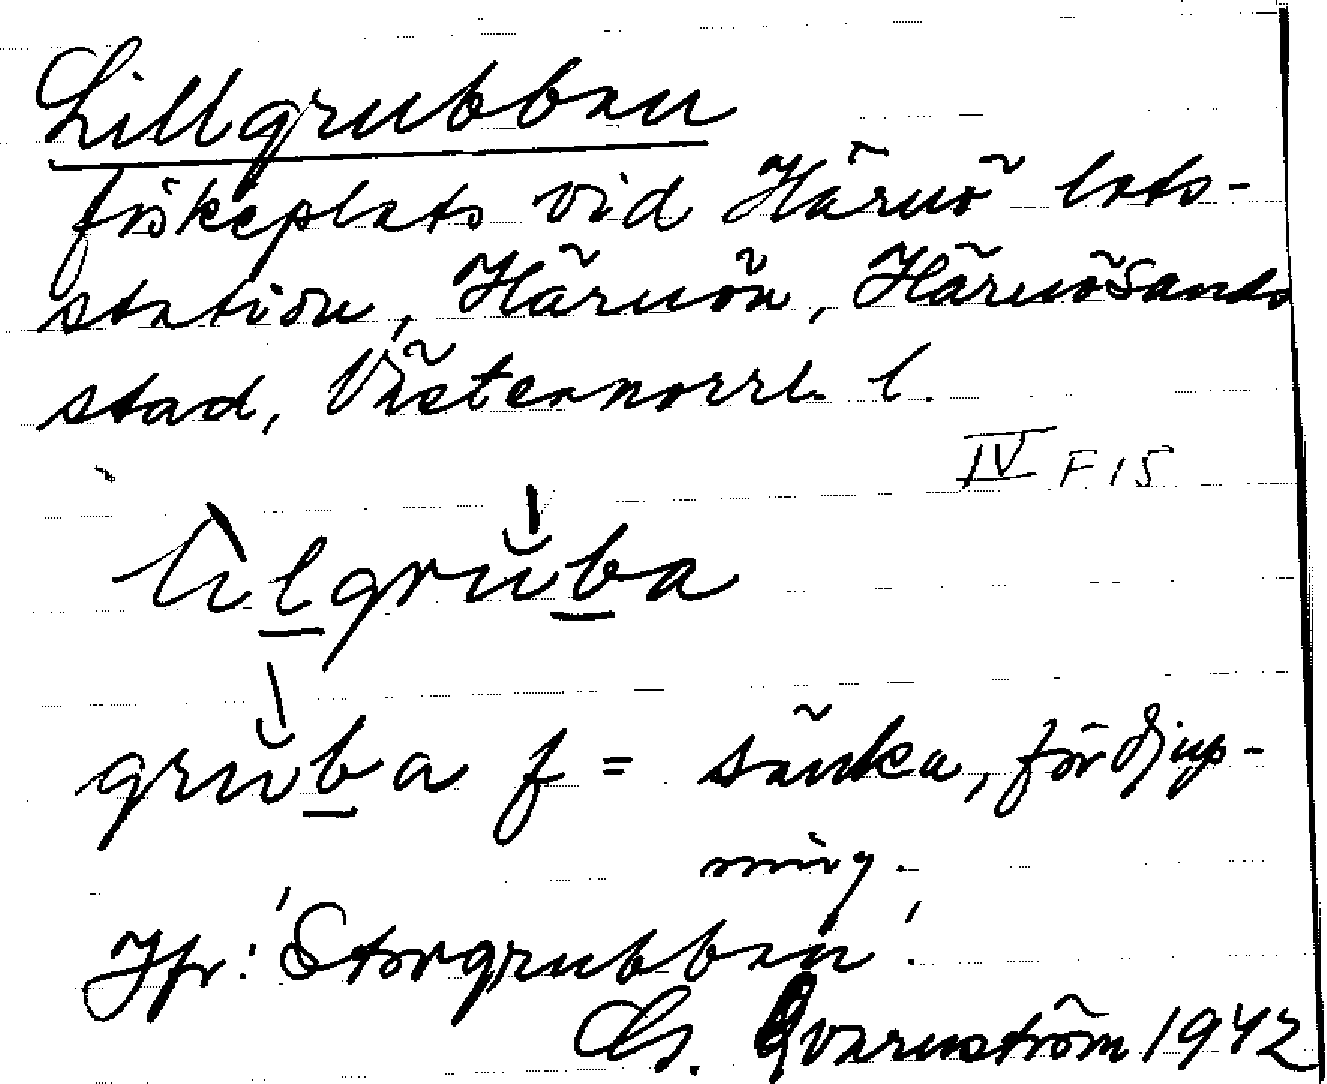 Lillgrubban
fiskeplats vid Härnö lots-
station, Härnön, Härnösands
stad, Västernorrl. l.
IV F 15
lìlgrŭba
grŭba f = sänka, fördjup-
ning.
Jfr: 'Storgrubban'.
Qvarnström 1942